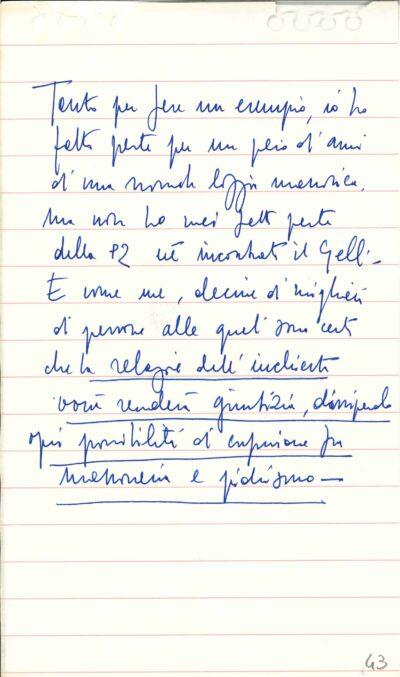 Tanto per fare un esempio, io ho
fatto parte per un paio d'anni
d'una normale loggia massonica,
ma non ho mai fatto parte
della P2 né incontrato il Gelli.
E come me, decine di migliaia
di persone alle quali sono certo
che la relazione dell'inchiesta
vorrà rendere giustizia, dissipando
ogni possibilità di confusione fra
massoneria e piduismo —
43